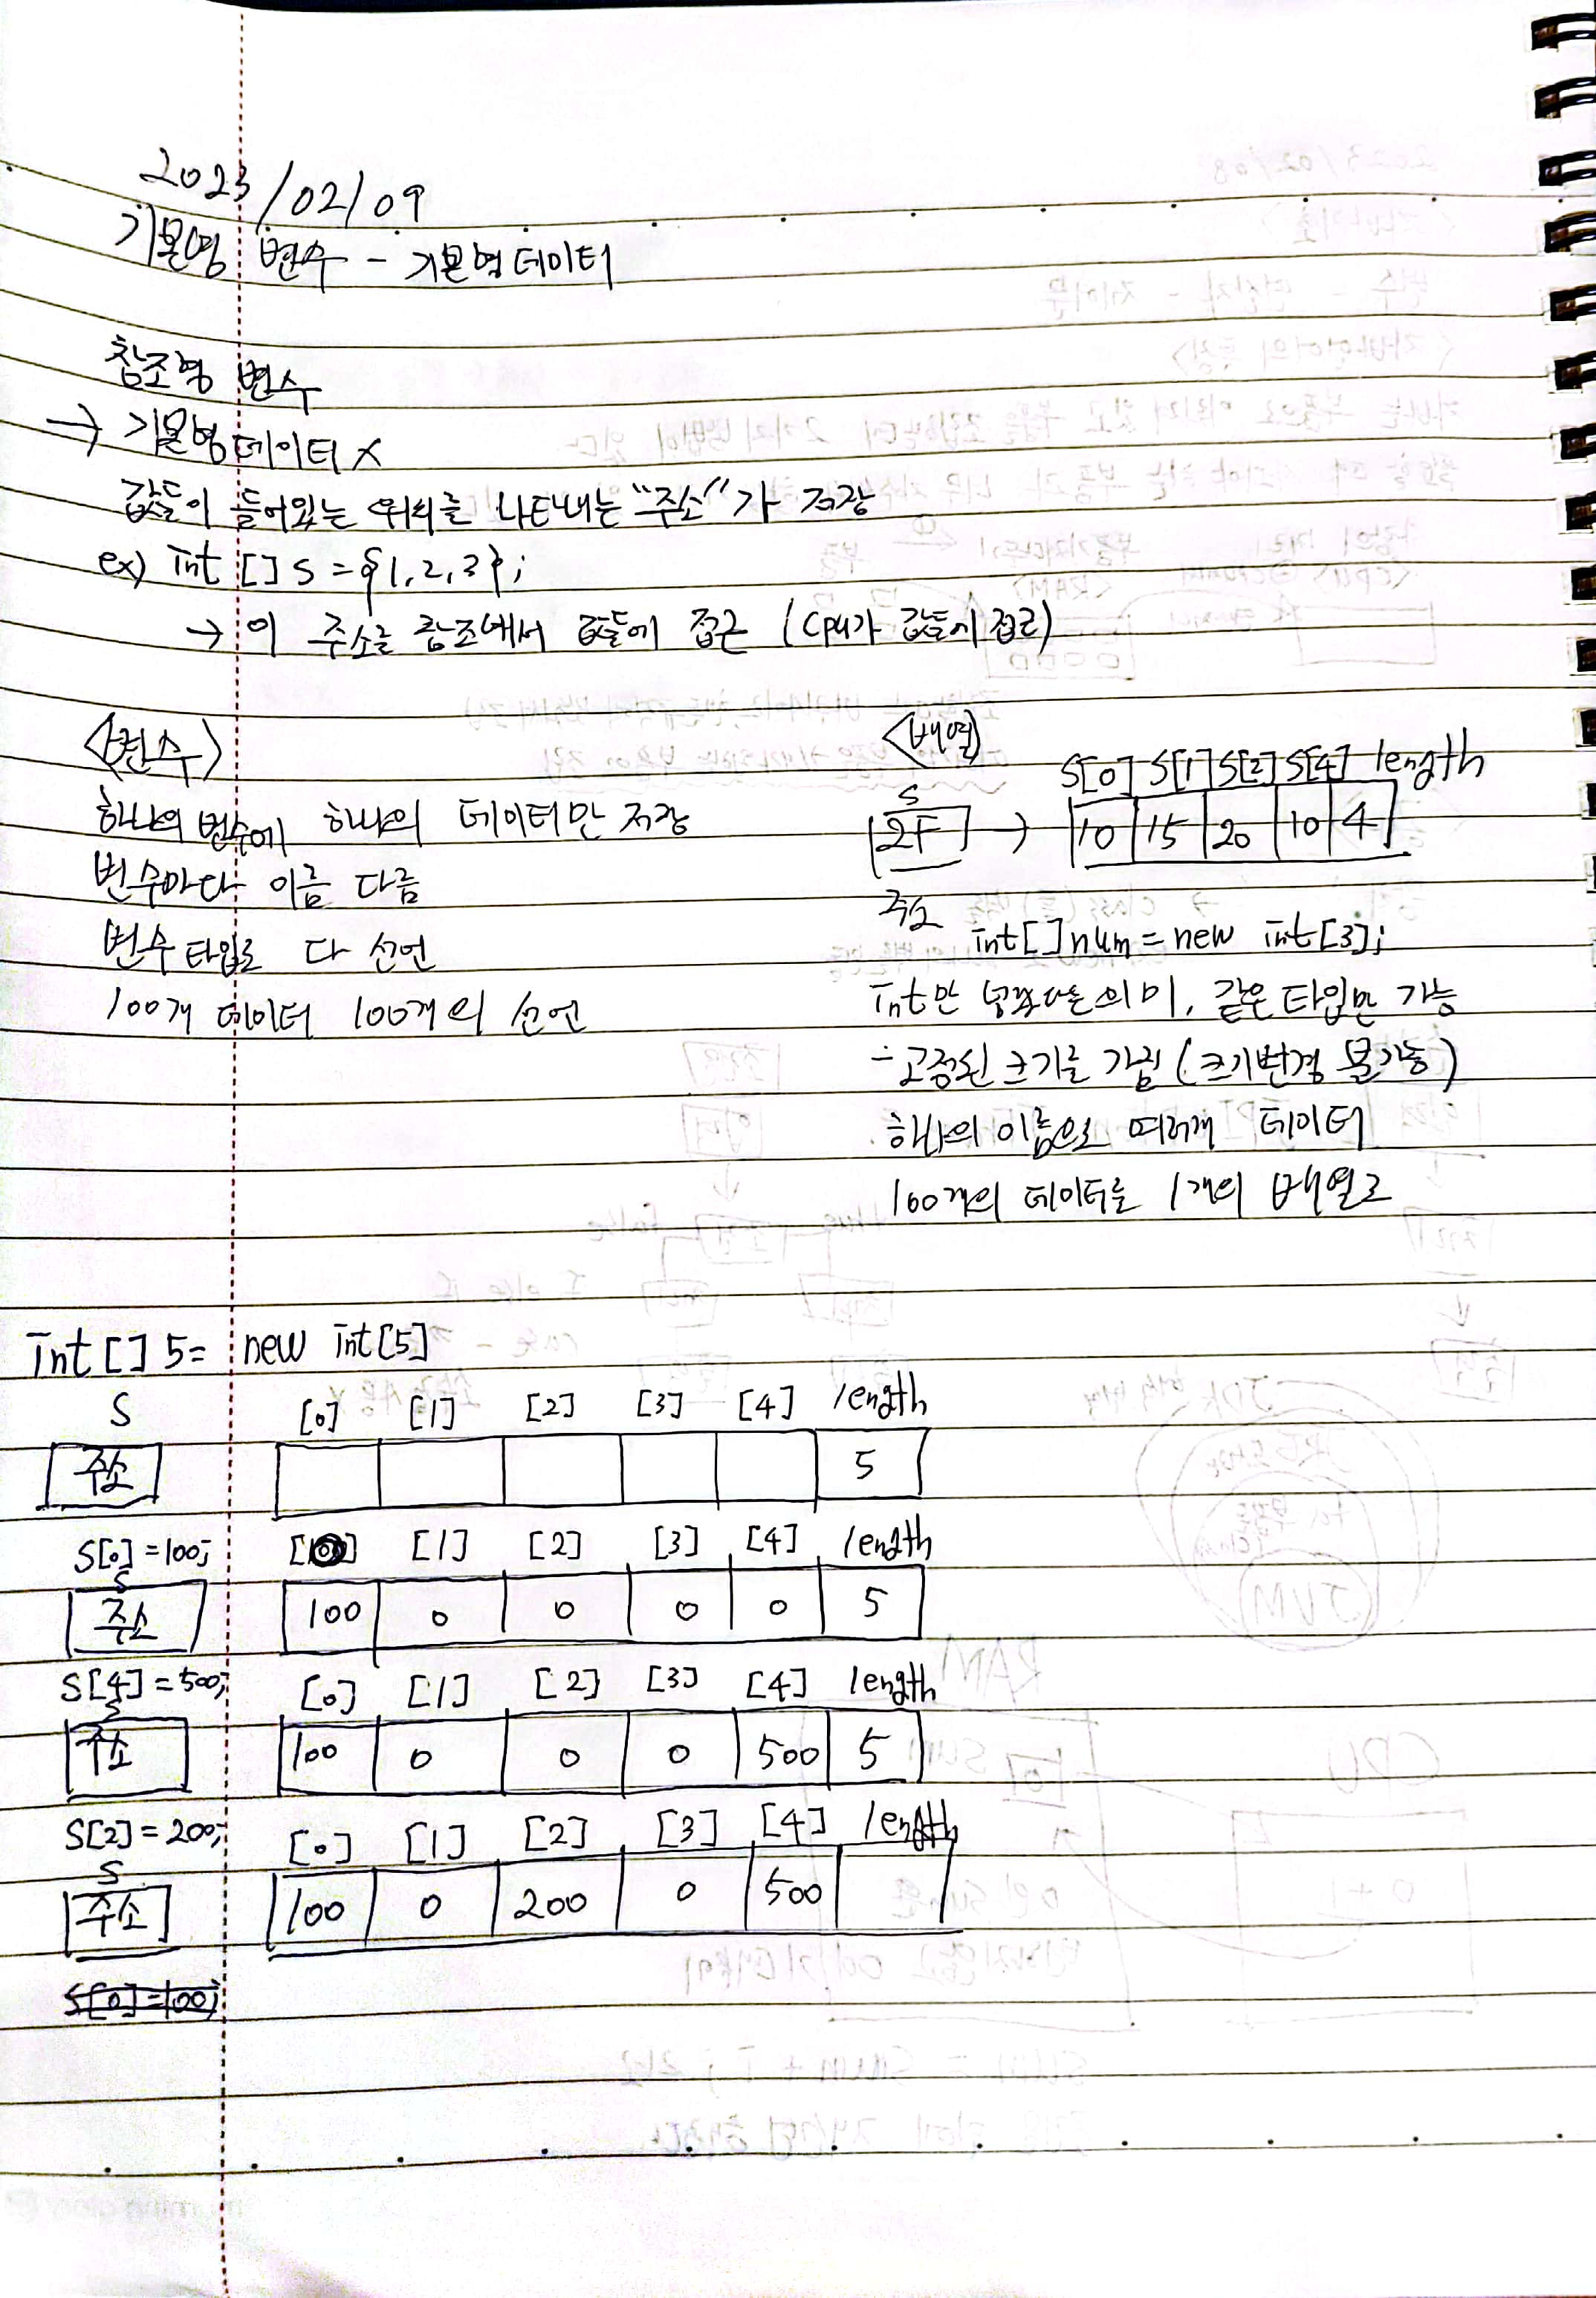 2023/02/09
기본형 변수 - 기본형 데이터
참조형 변수
→ 기본형 데이터 X
값들이 들어있는 위치를 나타내는 "주소"가 저장
ex) int [] s = {1, 2, 3};
→ 이 주소를 참조해서 값들에 접근 (cpu가 값들에 접근)
<변수>
하나의 변수에 하나의 데이터만 저장
변수마다 이름 다름
변수 타입로 다 선언
100개 데이터 100개의 선언
<배열>
S[0] S[1] S[2] S[4] length
S
2F → 10 15 20 10 4
주소
int[] num = new int[3];
int만 넣겠다는 의미, 같은 타입만 가능
- 고정된 크기를 가짐 (크기변경 불가능)
하나의 이름으로 여러개 데이터
100개의 데이터를 1개의 배열로
int [] 5 = new int [5]
S [0] [1] [2] [3] [4] length
주소 5
S[0] = 100; [0] [1] [2] [3] [4] length
S
주소 100 0 0 0 0 5
S[4] = 500; [0] [1] [2] [3] [4] length
S
주소 100 0 0 0 500 5
S[2] = 200; [0] [1] [2] [3] [4] length
S
주소 100 0 200 0 500
S[0] = 100;